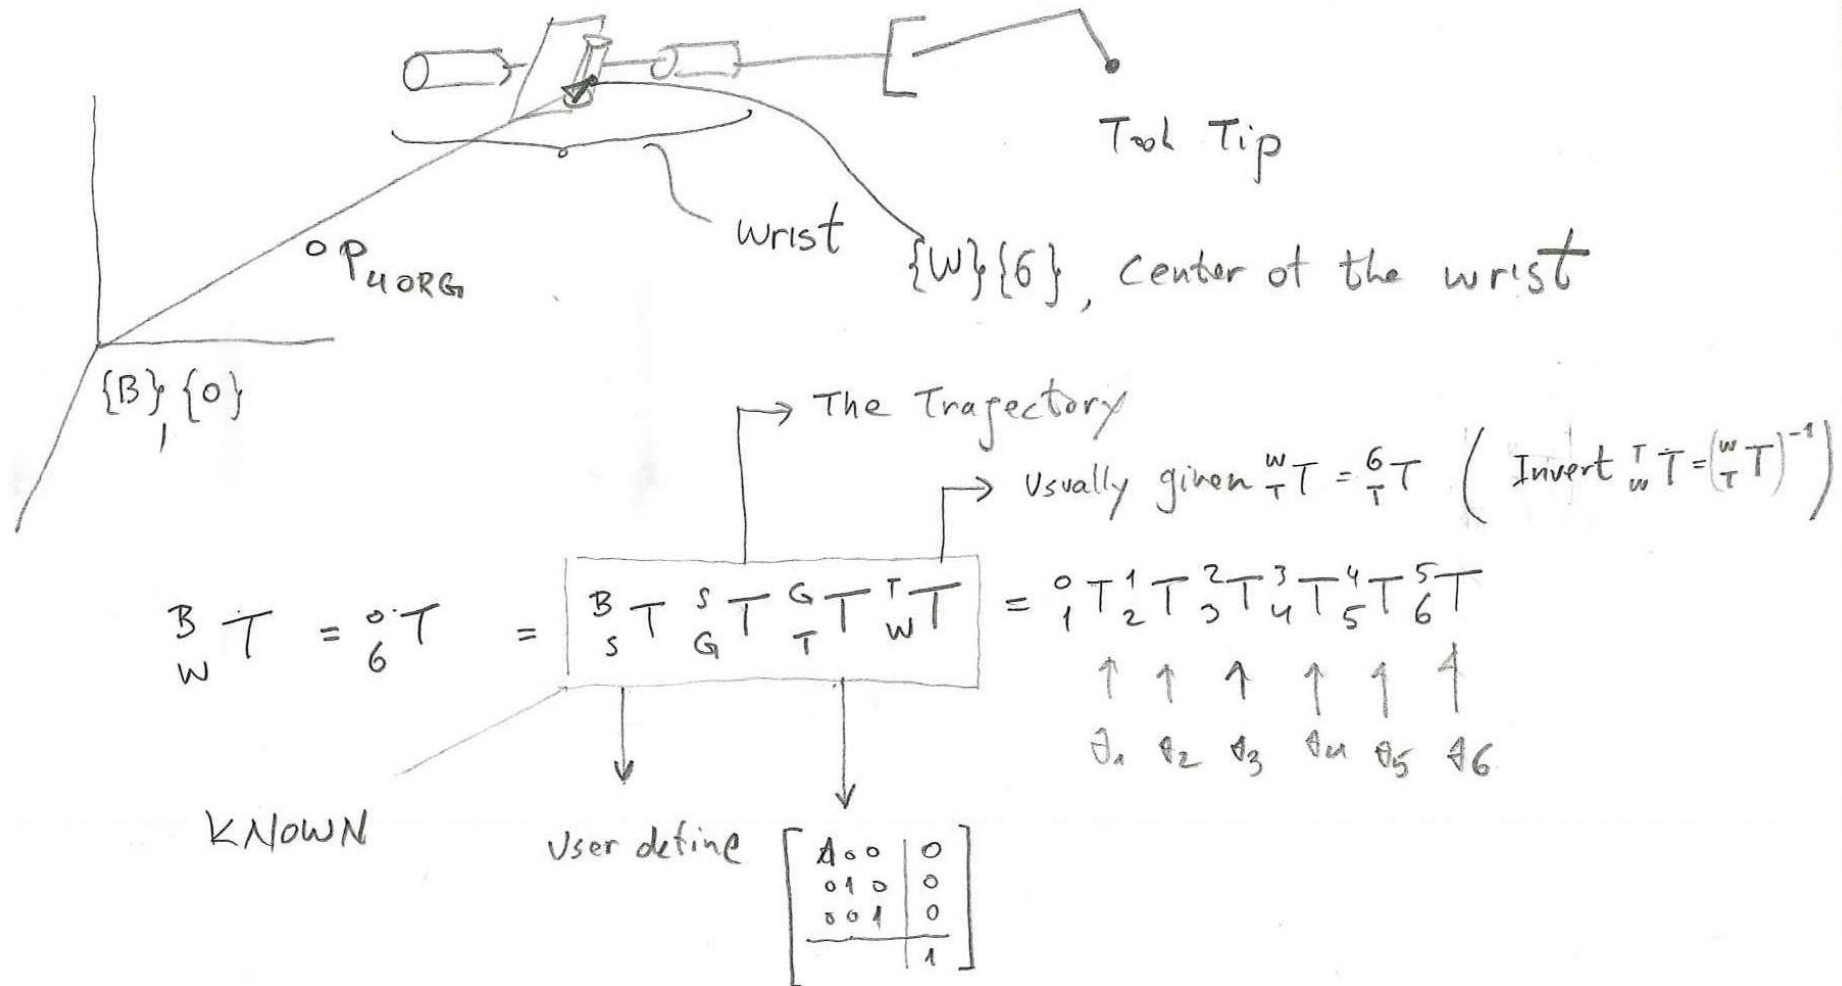 Tool Tip
wrist
⁰P₄ORG
{W}{6}, center of the wrist
{B}, {0}
The Trajectory
Usually given ᵂ_T T = ⁶_T T ( Invert ᵀ_W T = (ᵂ_T T)⁻¹ )
ᴮ_W T = ⁰_6 T = ᴮ_S T ˢ_G T ᴳ_T T ᵀ_W T = ⁰_1 T ¹_2 T ²_3 T ³_4 T ⁴_5 T ⁵_6 T
↑ ↑ ↑ ↑ ↑ ↑
θ1 θ2 θ3 θ4 θ5 θ6
KNOWN
User define
1 0 0 | 0
0 1 0 | 0
0 0 1 | 0
| 1